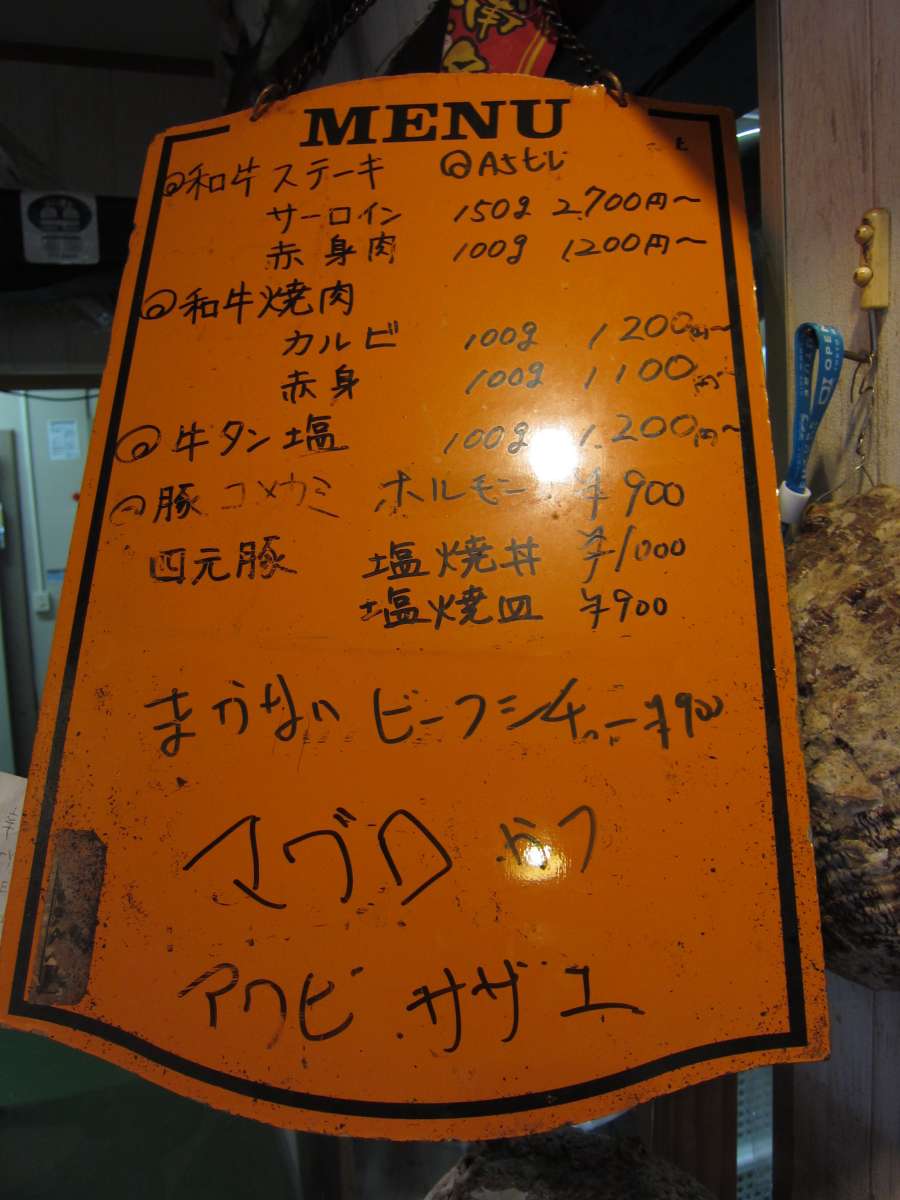 MENU
和牛ステーキ
サーロイン 150g 2.700円～
赤身肉 100g 1200円～
和牛焼肉
カルビ 100g 1200円～
赤身 100g 1100円
牛タン塩 100g 1.200円～
豚コメカミ ホルモン ¥900
四元豚 塩焼丼 ¥1000
塩焼皿 ¥900
まかない ビーフシチュー ¥900
マグロ カマ
アワビ.サザエ